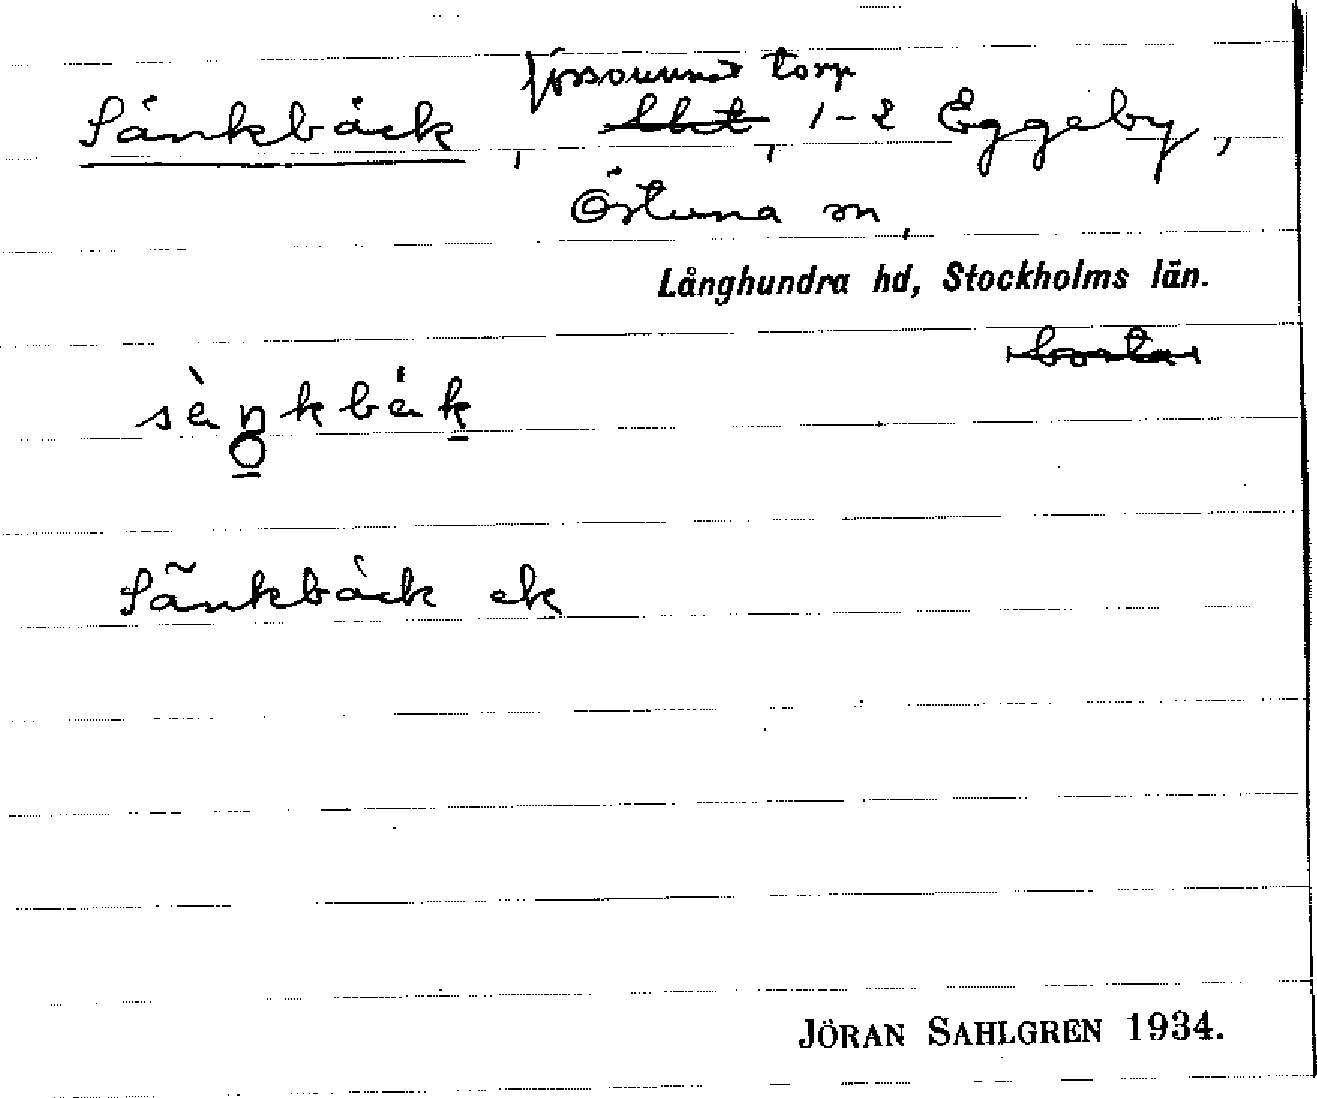 försvunnet torp
Sänkbäck, 1-2 Eggeby,
Östuna sn,
Långhundra hd, Stockholms län.
borta
sèŋkbäk
Sänkbäck ek
JÖRAN SAHLGREN 1934.